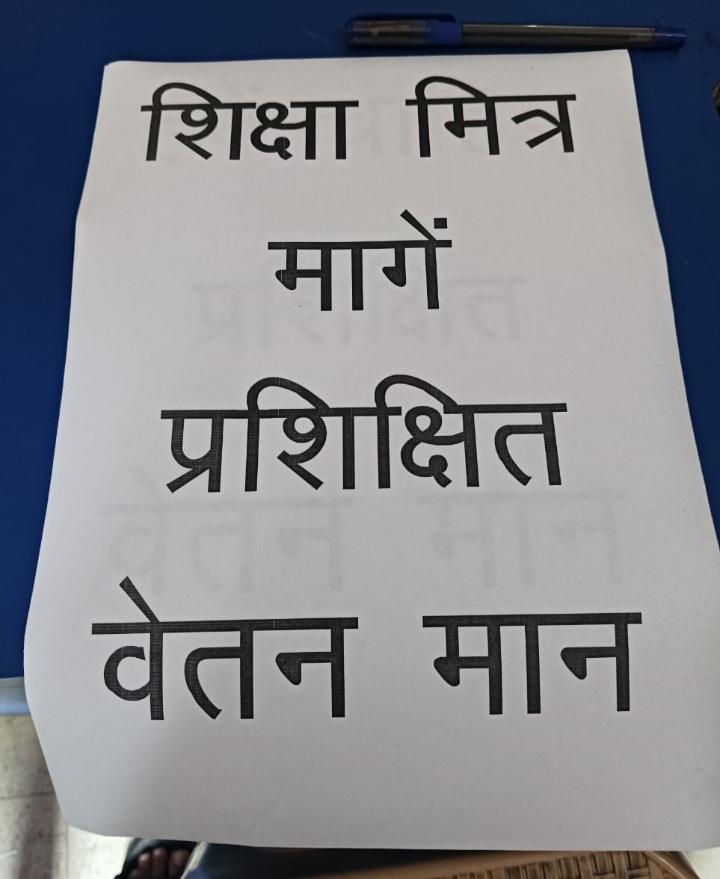 शिक्षा मित्र
मागें
प्रशिक्षित
वेतन मान